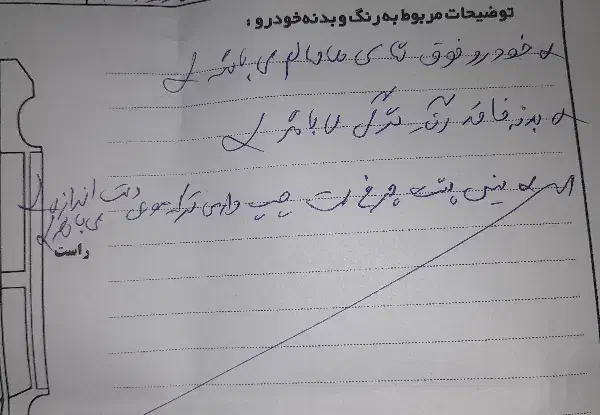 توضیحات مربوط به رنگ و بدنه خودرو :
خودرو فوق تمامی سالم می باشد
بدنه فاقد رنگ می باشد
پشت چرخ چپ دارای ترک موی دست اندازه
می باشد
راست